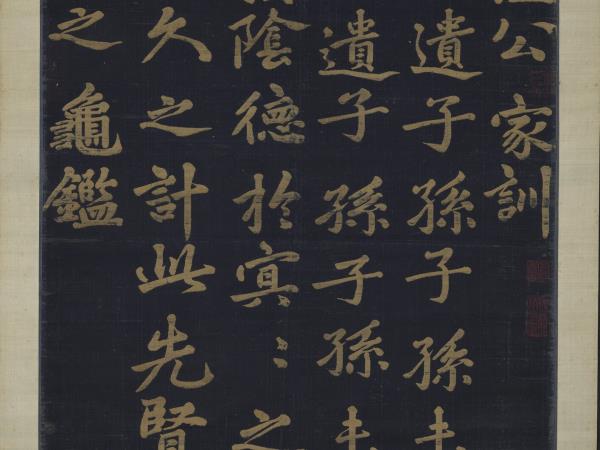 公家訓
遺子孫子孫未
遺子孫子孫未
陰德於㝠〻之
久之計此先賢
之龜鑑